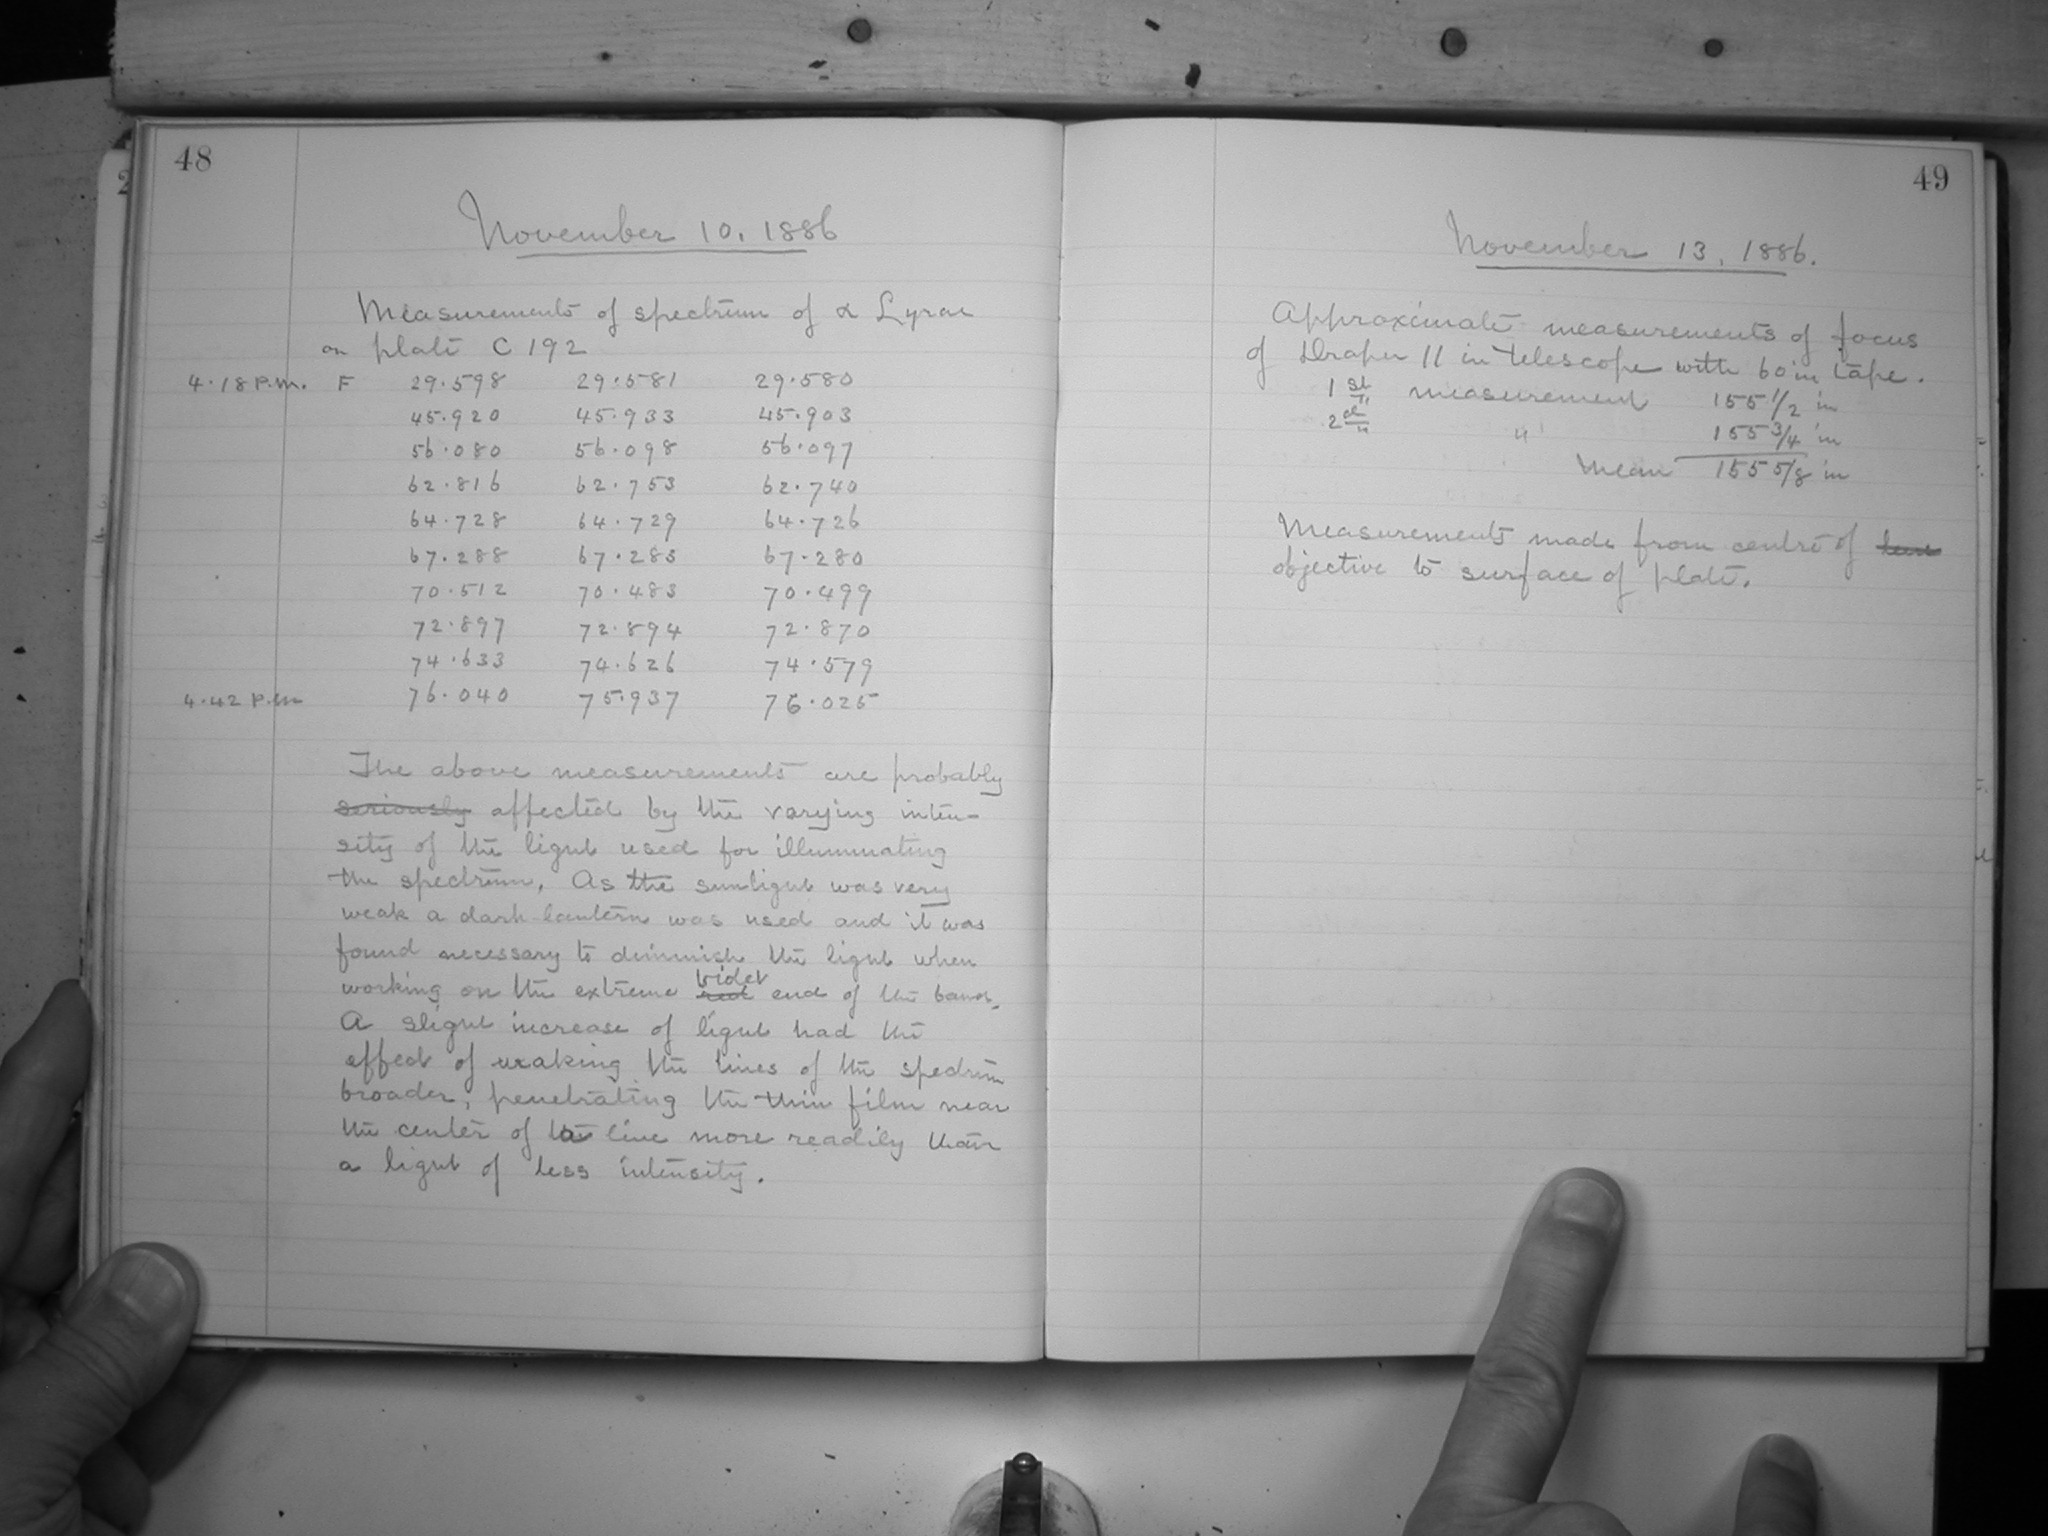 48
November 10, 1886
Measurements of spectrum of α Lyrae
on plate C 192
4.18 P.M. F 29.598 29.581 29.580
45.920 45.933 45.903
56.080 56.098 56.097
62.816 62.753 62.740
64.728 64.729 64.726
67.288 67.283 67.280
70.512 70.483 70.499
72.897 72.894 72.870
74.633 74.626 74.579
4.42 P.M 76.040 75.937 76.025
The above measurements are probably
seriously affected by the varying inten-
sity of the light used for illuminating
the spectrum. As the sunlight was very
weak a dark lantern was used and it was
found necessary to diminish the light when
violet
working on the extreme red end of the band.
A slight increase of light had the
effect of making the lines of the spectrum
broader, penetrating the thin film near
the center of a line more readily than
a light of less intensity.
49
November 13, 1886.
Approximate measurements of focus
of Draper 11 in telescope with 60 in tape.
1st measurement 155 1/2 in
2d " 155 3/4 in
Mean 155 5/8 in
Measurements made from centre of lens
objective to surface of plate.